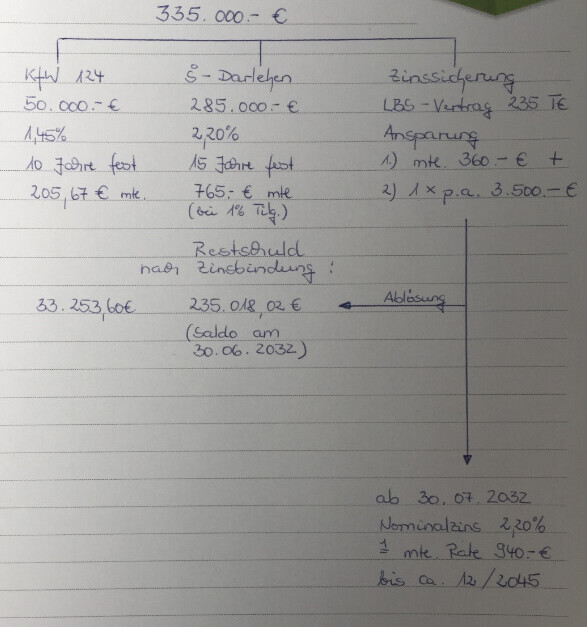 335.000.- €
KfW 124
50.000.- €
1,45%
10 Jahre fest
205,67 € mtl.
Š - Darlehen
285.000.- €
2,20%
15 Jahre fest
765.- € mtl.
(bei 1% Tilg.)
Zinssicherung
LBS - Vertrag 235 T€
Ansparung
1.) mtl. 360.- € +
2) 1 x p.a. 3.500.- €
Restschuld
nach Zinsbindung :
33.253,60€
235.018,02 €
(Saldo am
30.06.2032)
Ablösung
ab 30.07.2032
Nominalzins 2,20%
1 mtl. Rate 940.- €
bis ca. 12/2045